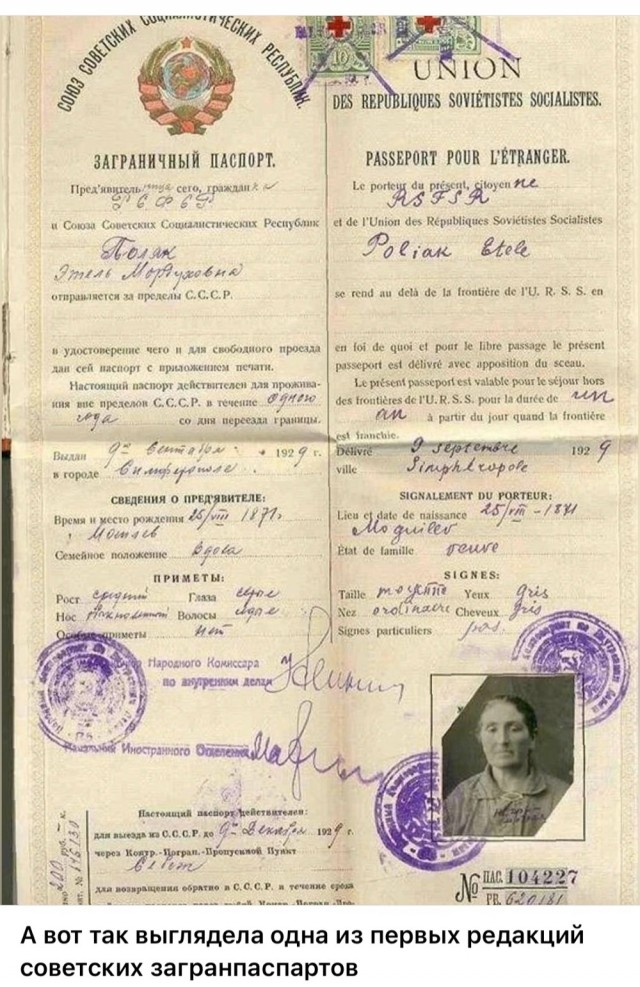 СОЮЗ СОВЕТСКИХ СОЦИАЛИСТИЧЕСКИХ РЕСПУБЛИК.
ЗАГРАНИЧНЫЙ ПАСПОРТ.
Пред'явитель сего, граждан
РСФСР
и Союза Советских Социалистических Республик
Поляк
Этель Мордуховна
отправляется за пределы С.С.С.Р.
в удостоверение чего и для свободного проезда
дан сей паспорт с приложением печати.
Настоящий паспорт действителен для прожива-
ния вне пределов С.С.С.Р. в течение одного
года со дня переезда границы.
Выдан 9го Сентября 1929 г.
в городе Симферополе.
СВЕДЕНИЯ О ПРЕД'ЯВИТЕЛЕ:
Время и место рождения 25/VIII 1871 г.
г. Могилев
Семейное положение вдова
ПРИМЕТЫ:
Рост средний Глаза серые
Нос Волосы седые
Особые приметы нет
10
UNION
DES REPUBLIQUES SOVIÉTISTES SOCIALISTES.
PASSEPORT POUR L'ÉTRANGER.
Le porteur du présent, citoyenne
RSFSR
et de l'Union des Républiques Soviétistes Socialistes
Poliak Etele
se rend au delà de la frontière de l'U. R. S. S. en
en foi de quoi et pour le libre passage le présent
passeport est délivré avec apposition du sceau.
Le présent passeport est valable pour le séjour hors
des frontières de l'U. R. S. S. pour la durée de un
an à partir du jour quand la frontière
est franchie.
Délivré 9 septembre 1929
ville Simphéropole
SIGNALEMENT DU PORTEUR:
Lieu et date de naissance 25/VIII - 1871
Moguilev
État de famille veuve
SIGNES:
Taille moyenne Yeux gris
Nez ordinaire Cheveux gris
Signes particuliers pas
Народного Комиссара
по внутренним делам
Начальник Иностранного Отделения
Настоящий паспорт действителен:
для выезда из С.С.С.Р. до 9го Декабря 1929 г.
через Контр.-Погран.-Пропускной Пункт
для возвращения обратно в С.С.С.Р. в течение срока
№ ПАС. 104227
А вот так выглядела одна из первых редакций
советских загранпаспартов